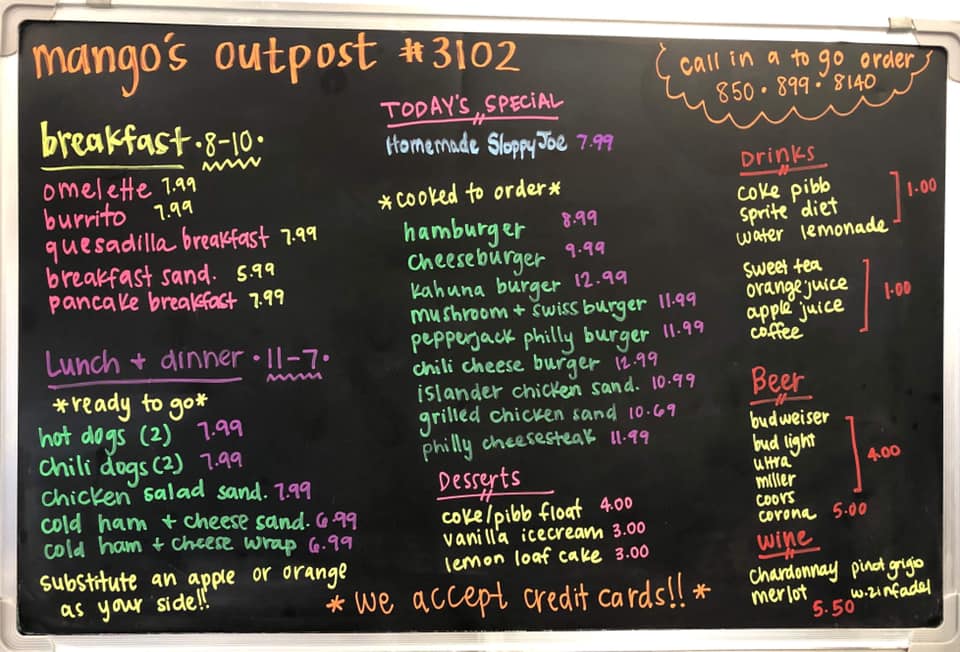 mango's outpost #3102
call in a to go order
850·899·8140
breakfast·8-10·
omelette 7.99
burrito 7.99
quesadilla breakfast 7.99
breakfast sand. 5.99
pancake breakfast 7.99
Lunch + dinner ·11-7·
*ready to go*
hot dogs (2) 7.99
chili dogs (2) 7.99
chicken salad sand. 7.99
cold ham + cheese sand. 6.99
cold ham + cheese wrap 6.99
substitute an apple or orange
as your side!!
TODAY'S SPECIAL
Homemade Sloppy Joe 7.99
*cooked to order*
hamburger 8.99
cheeseburger 9.99
kahuna burger 12.99
mushroom + swiss burger 11.99
pepperjack philly burger 11.99
chili cheese burger 12.99
islander chicken sand. 10.99
grilled chicken sand 10.69
philly cheesesteak 11.99
Desserts
coke/pibb float 4.00
vanilla icecream 3.00
lemon loaf cake 3.00
Drinks
coke pibb
sprite diet 1.00
water lemonade
sweet tea
orange juice 1.00
apple juice
coffee
Beer
budweiser
bud light
ultra 4.00
miller
coors
corona 5.00
wine
chardonnay pinot grigio
merlot w.zinfadel
5.50
*we accept credit cards!!*